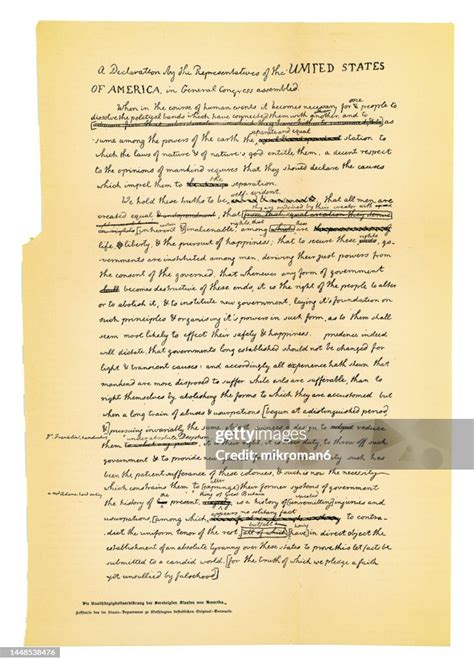 A Declaration by the Representatives of the UNITED STATES
OF AMERICA, in General Congress assembled.
When in the course of human events it becomes necessary for one people to
dissolve the political bands which have connected them with another, and to
as
sume among the powers of the earth the separate and equal station to
which the laws of nature & of nature's god entitle them, a decent respect
to the opinions of mankind requires that they should declare the causes
which impel them to the separation.
We hold these truths to be self-evident, that all men are
created equal, that they are endowed by their creator with
[inherent & inalienable] rights, that among these are
life, & liberty, & the pursuit of happiness; that to secure these rights, go-
vernments are instituted among men, deriving their just powers from
the consent of the governed, that whenever any form of government
becomes destructive of these ends, it is the right of the people to alter
or to abolish it, & to institute new government, laying it's foundation on
such principles & organising it's powers in such form, as to them shall
seem most likely to effect their safety & happiness. prudence indeed
will dictate that governments long established should not be changed for
light & transient causes: and accordingly all experience hath shewn that
mankind are more disposed to suffer while evils are sufferable, than to
right themselves by abolishing the forms to which they are accustomed. but
when a long train of abuses & usurpations [begun at a distinguished period
& pursuing invariably the same object, evinces a design to reduce
Dr. Franklin's handwriting
them under absolute Despotism, it is their right, it is their duty, to throw off such
government & to provide new guards for their future security. such has
been the patient sufferance of these colonies, & such is now the necessity
which constrains them to [expunge] alter their former systems of government.
Mr. Adams' handwriting
the history of the present king of Great Britain is a history of [unremitting] repeated injuries and
usurpations, [among which appears no solitary fact to contra-
dict the uniform tenor of the rest [all of which] but all have [have] in direct object the
establishment of an absolute tyranny over these states. to prove this let facts be
submitted to a candid world, [for the truth of which we pledge a faith
yet unsullied by falsehood]
Die Unabhängigkeitserklärung der Vereinigten Staaten von Amerika.
Faksimile des im Staats-Departement zu Washington befindlichen Original-Entwurfs.
gettyimages
Credit: mikroman6
1448538476